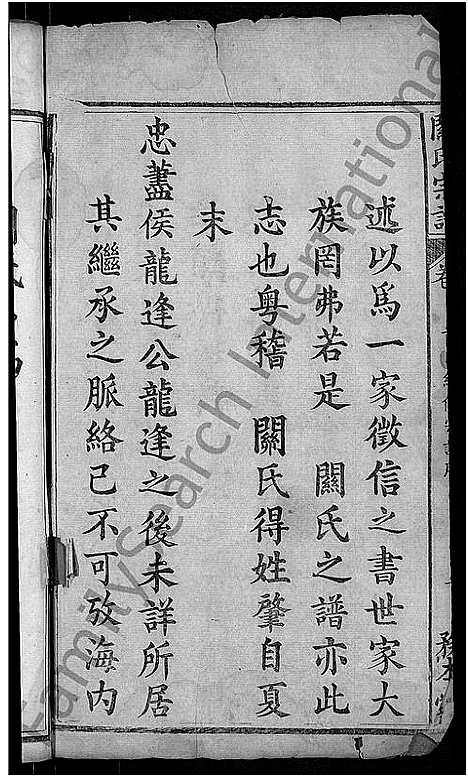 述以爲一家徵信之書世家大
族罔弗若是　關氏之譜亦此
志也粤稽　關氏得姓肇自夏
末
忠藎侯龍逢公龍逢之後未詳所居
其繼承之脈絡已不可攷海内
關氏宗譜
卷
FamilySearch International